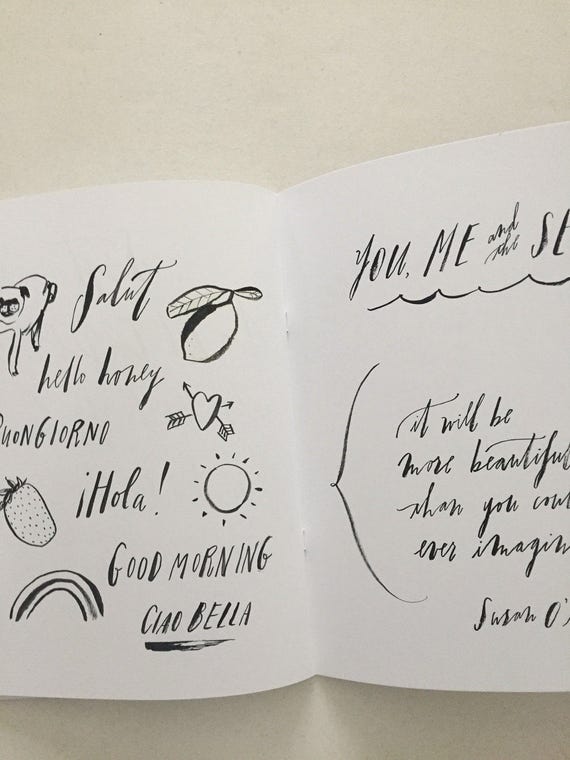 Salut
hello honey
BUONGIORNO
¡Hola!
GOOD MORNING
CIAO BELLA
YOU, ME and the SE
it will be
more beautiful
than you cou
ever imagin
Susan O'